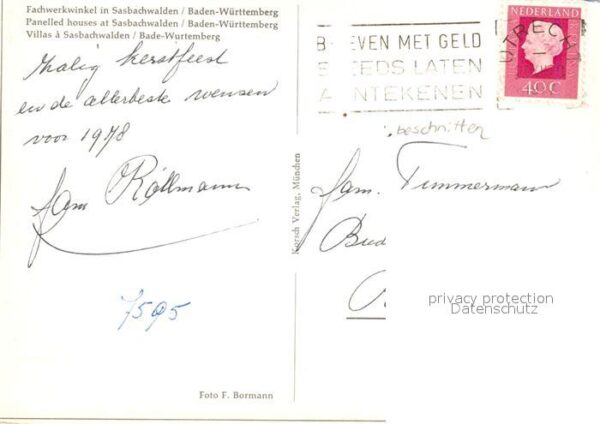 Fachwerkwinkel in Sasbachwalden / Baden-Württemberg
Panelled houses at Sasbachwalden / Baden-Württemberg
Villas à Sasbachwalden / Bade-Wurtemberg
Zalig kerstfeest
en de allerbeste wensen
voor 1978
fam Rollmann
7595
Foto F. Bormann
Korsch Verlag, München
B EVEN MET GELD
S EEDS LATEN
A NTEKENEN
UTRECH
NEDERLAND
40C
beschnitten
fam. Timmerman
privacy protection
Datenschutz